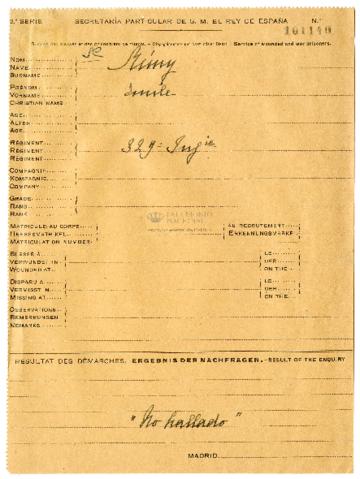 2.ª SERIE. SECRETARÍA PARTICULAR DE S. M. EL REY DE ESPAÑA N.º
101140
Service of wounded and war prisoners.
NOM
NAME
SURNAME
Rémy
PRÉNOM
VORNAME
CHRISTIAN NAME
Emile
AGE
ALTER
AGE
RÉGIMENT
REGIMENT
REGIMENT
329e Inf ie
COMPAGNIE
KOMPAGNIE
COMPANY
GRADE
RANG
RANK
PATRIMONIO
NACIONAL
MATRICULE AU CORPS
HEERESMATRIKEL
MATRICULATION NUMBER
AU RECRUTEMENT
ERKENNUNGSMARKE
BLESSÉ A
VERWUNDET IN
WOUNDED AT
LE
DER
ON THE
DISPARU A
VERMISST IN
MISSING AT
LE
DER
ON THE
OBSERVATIONS
BEMERKUNGEN
REMARKS
RÉSULTAT DES DÉMARCHES. ERGEBNIS DER NACHFRAGEN.—RESULT OF THE ENQUIRY
"No hallado"
MADRID